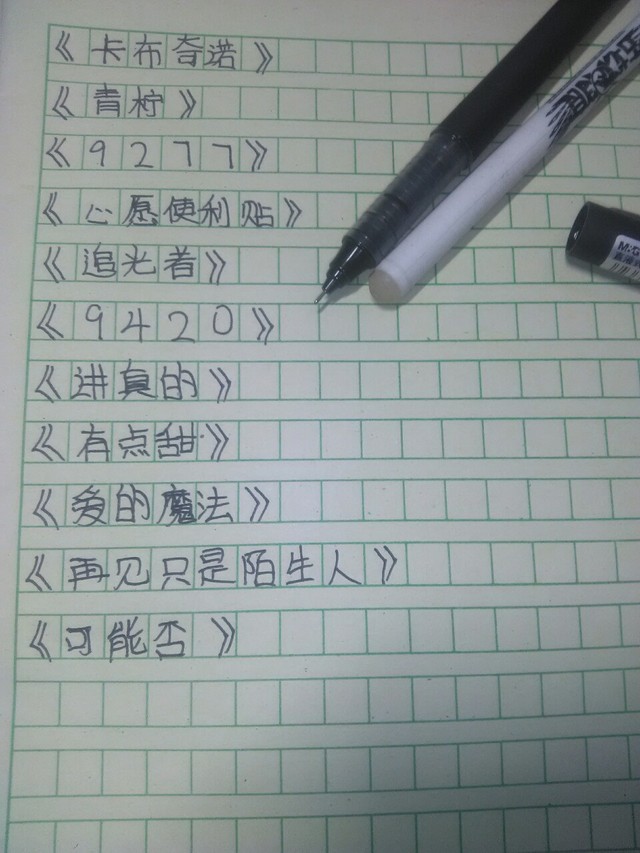 《卡布奇诺》
《青柠》
《9277》
《心愿便利贴》
《追光者》
《9420》
《讲真的》
《有点甜》
《爱的魔法》
《再见只是陌生人》
《可能否》
M&G